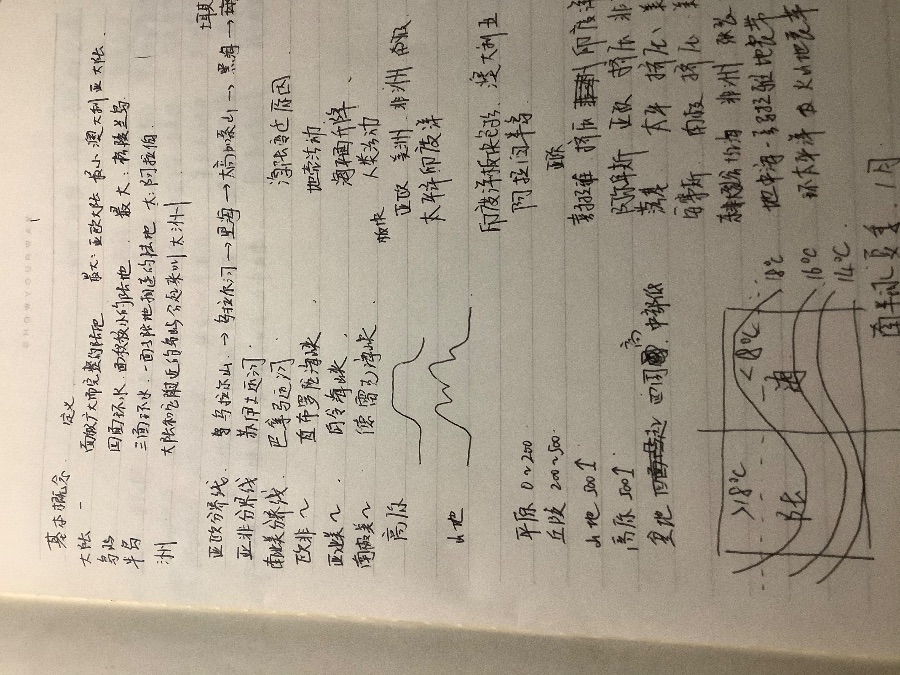 SHOWYOURWAY
基本概念 定义
大陆 - 面积广大而完整的陆地 最大:亚欧大陆 最小 澳大利亚大陆
岛屿 四面环水 面积较小的陆地 最大:格陵兰岛
半岛 三面环水 一面与陆地相连的陆地 大:阿拉伯
洲 大陆和它附近的岛屿合起来叫大洲
亚欧分界线 乌拉尔山 → 乌拉尔河 → 里海 → 大高加索山 → 黑海 →
亚非分界线 苏伊士运河
南北美分界线 巴拿马运河 海陆变迁原因
欧非~ 直布罗陀海峡 地壳运动
亚北美~ 白令海峡 海平面升降
南极美~ 德雷克海峡 人类活动
高原 板块 亚欧 美洲 非洲 南极
太平洋 印度洋
山地
印度洋板块包括 澳大利亚
平原 0~200 阿拉伯半岛
丘陵 200~500 亚欧
山地 500↑ 喜马拉雅 挤压 印度洋
高原 500↑ 阿尔卑斯 亚欧 挤压 非
盆地 四周高 中部低 落基 太平 挤压 美
安第斯 南极 挤压 美
东非大裂谷 非洲 张裂
地中海-喜马拉雅地震带
环太平洋 火山地震带
>18℃ <18℃ 18℃
陆 海 16℃
14℃
南半球 夏季 1月